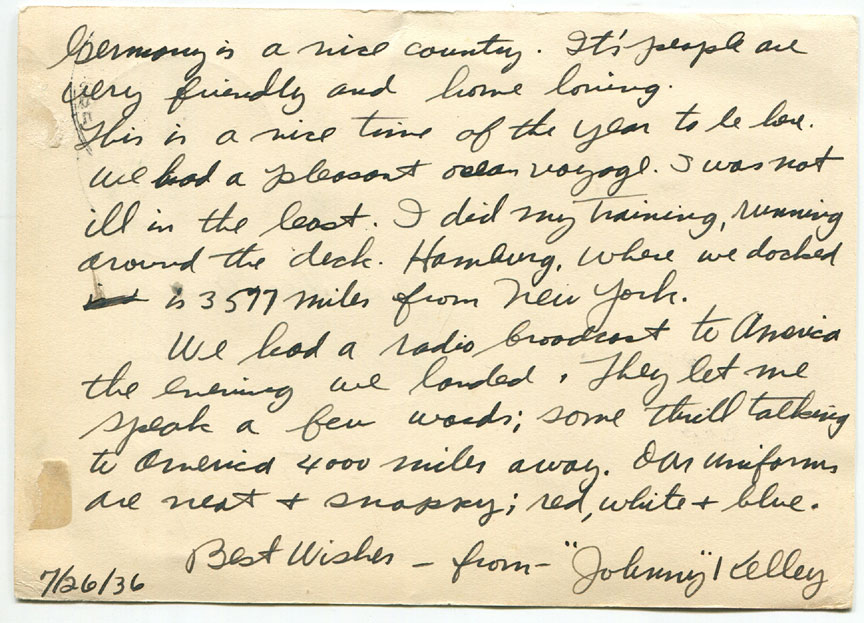 Germany is a nice country. It's people are
very friendly and home loving.
This is a nice time of the year to be here.
We had a pleasant ocean voyage. I was not
ill in the least. I did my training, running
around the deck. Hamburg, where we docked
is 3577 miles from New York.
We had a radio broadcast to America
the evening we landed. They let me
speak a few words; some thrill talking
to America 4000 miles away. Our uniforms
are neat + snappy; red, white + blue.
Best Wishes - from - "Johnny" Kelley
7/26/36